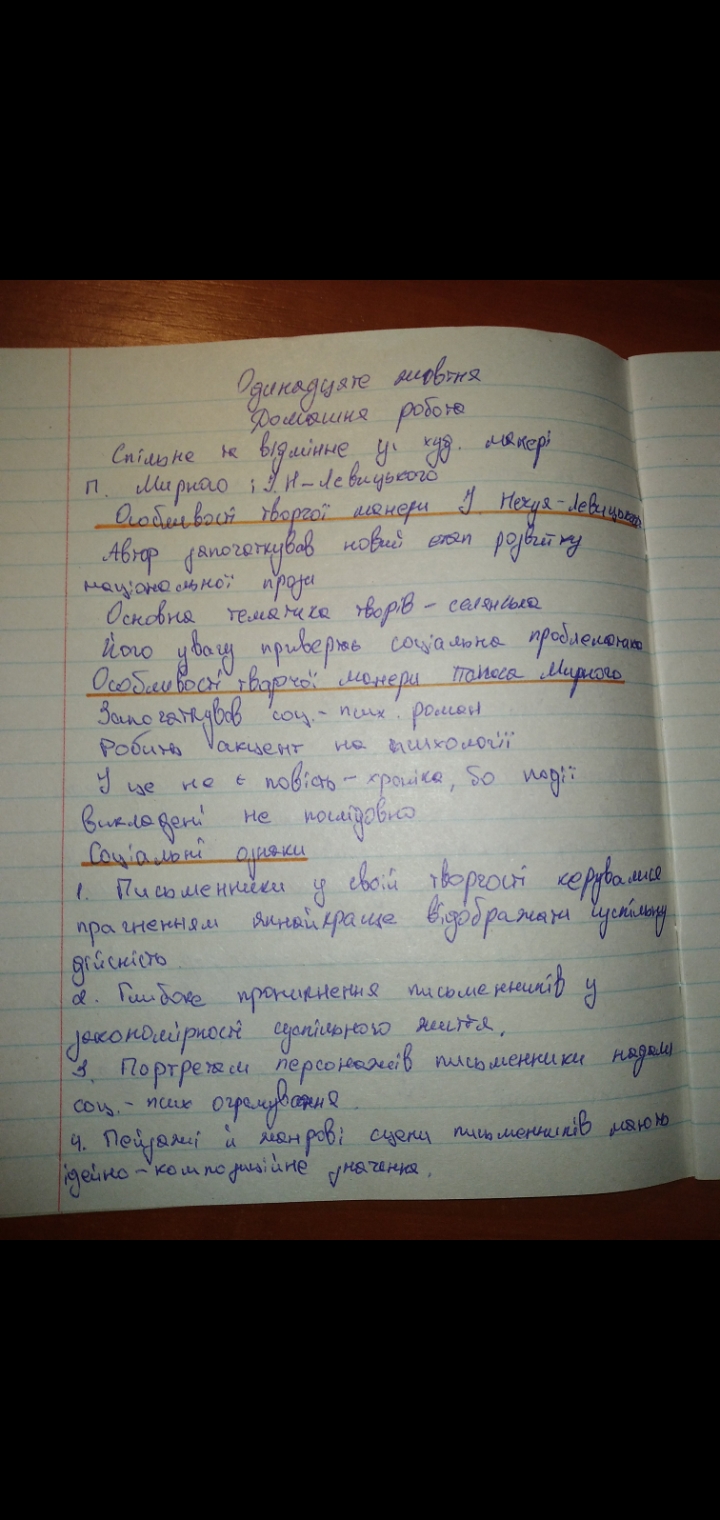 Одинадцяте жовтня
Домашня робота
Спільне та відмінне у худ. манері
П. Мирного і І.Н-Левицького
Особливості творчої манери І. Нечуя-Левицького
Автор започаткував новий етап розвитку
національної прози
Основна тематика творів - селянська
Його увагу привертає соціальна проблематика
Особливості творчої манери Панаса Мирного
Започаткував соц.- псих. роман
Робить акцент на психології
І це не є повість-хроніка, бо події
викладені не послідовно
Соціальні ознаки
1. Письменники у своїй творчості керувалися
прагненням якнайкраще відображати суспільну
дійсність
2. Глибоке проникнення письменників у
закономірності суспільного життя.
3. Портретам персонажів письменники надали
соц.- псих
4. Пейзажі й жанрові сцени письменників мають
ідейно-композиційне значення.